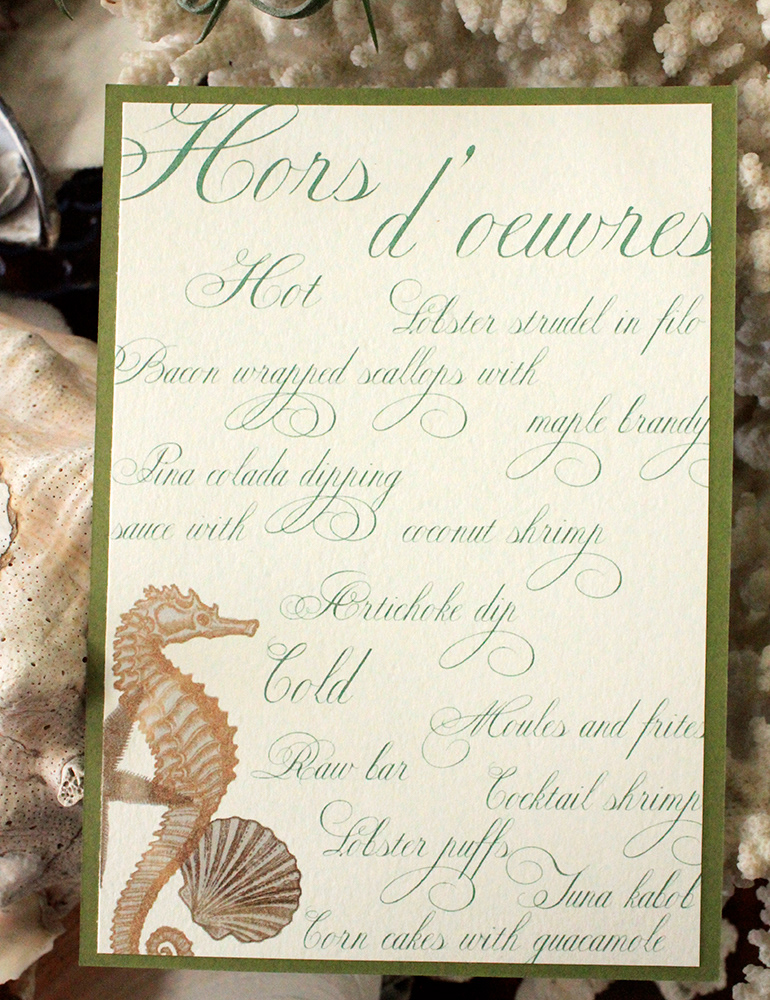 Hors
d'oeuvres
Hot
Lobster strudel in filo
Bacon wrapped scallops with
maple brandy
Pina colada dipping
sauce with coconut shrimp
Artichoke dip
Cold
Moules and frites
Raw bar
Cocktail shrimp
Lobster puffs
Tuna kabob
Corn cakes with guacamole